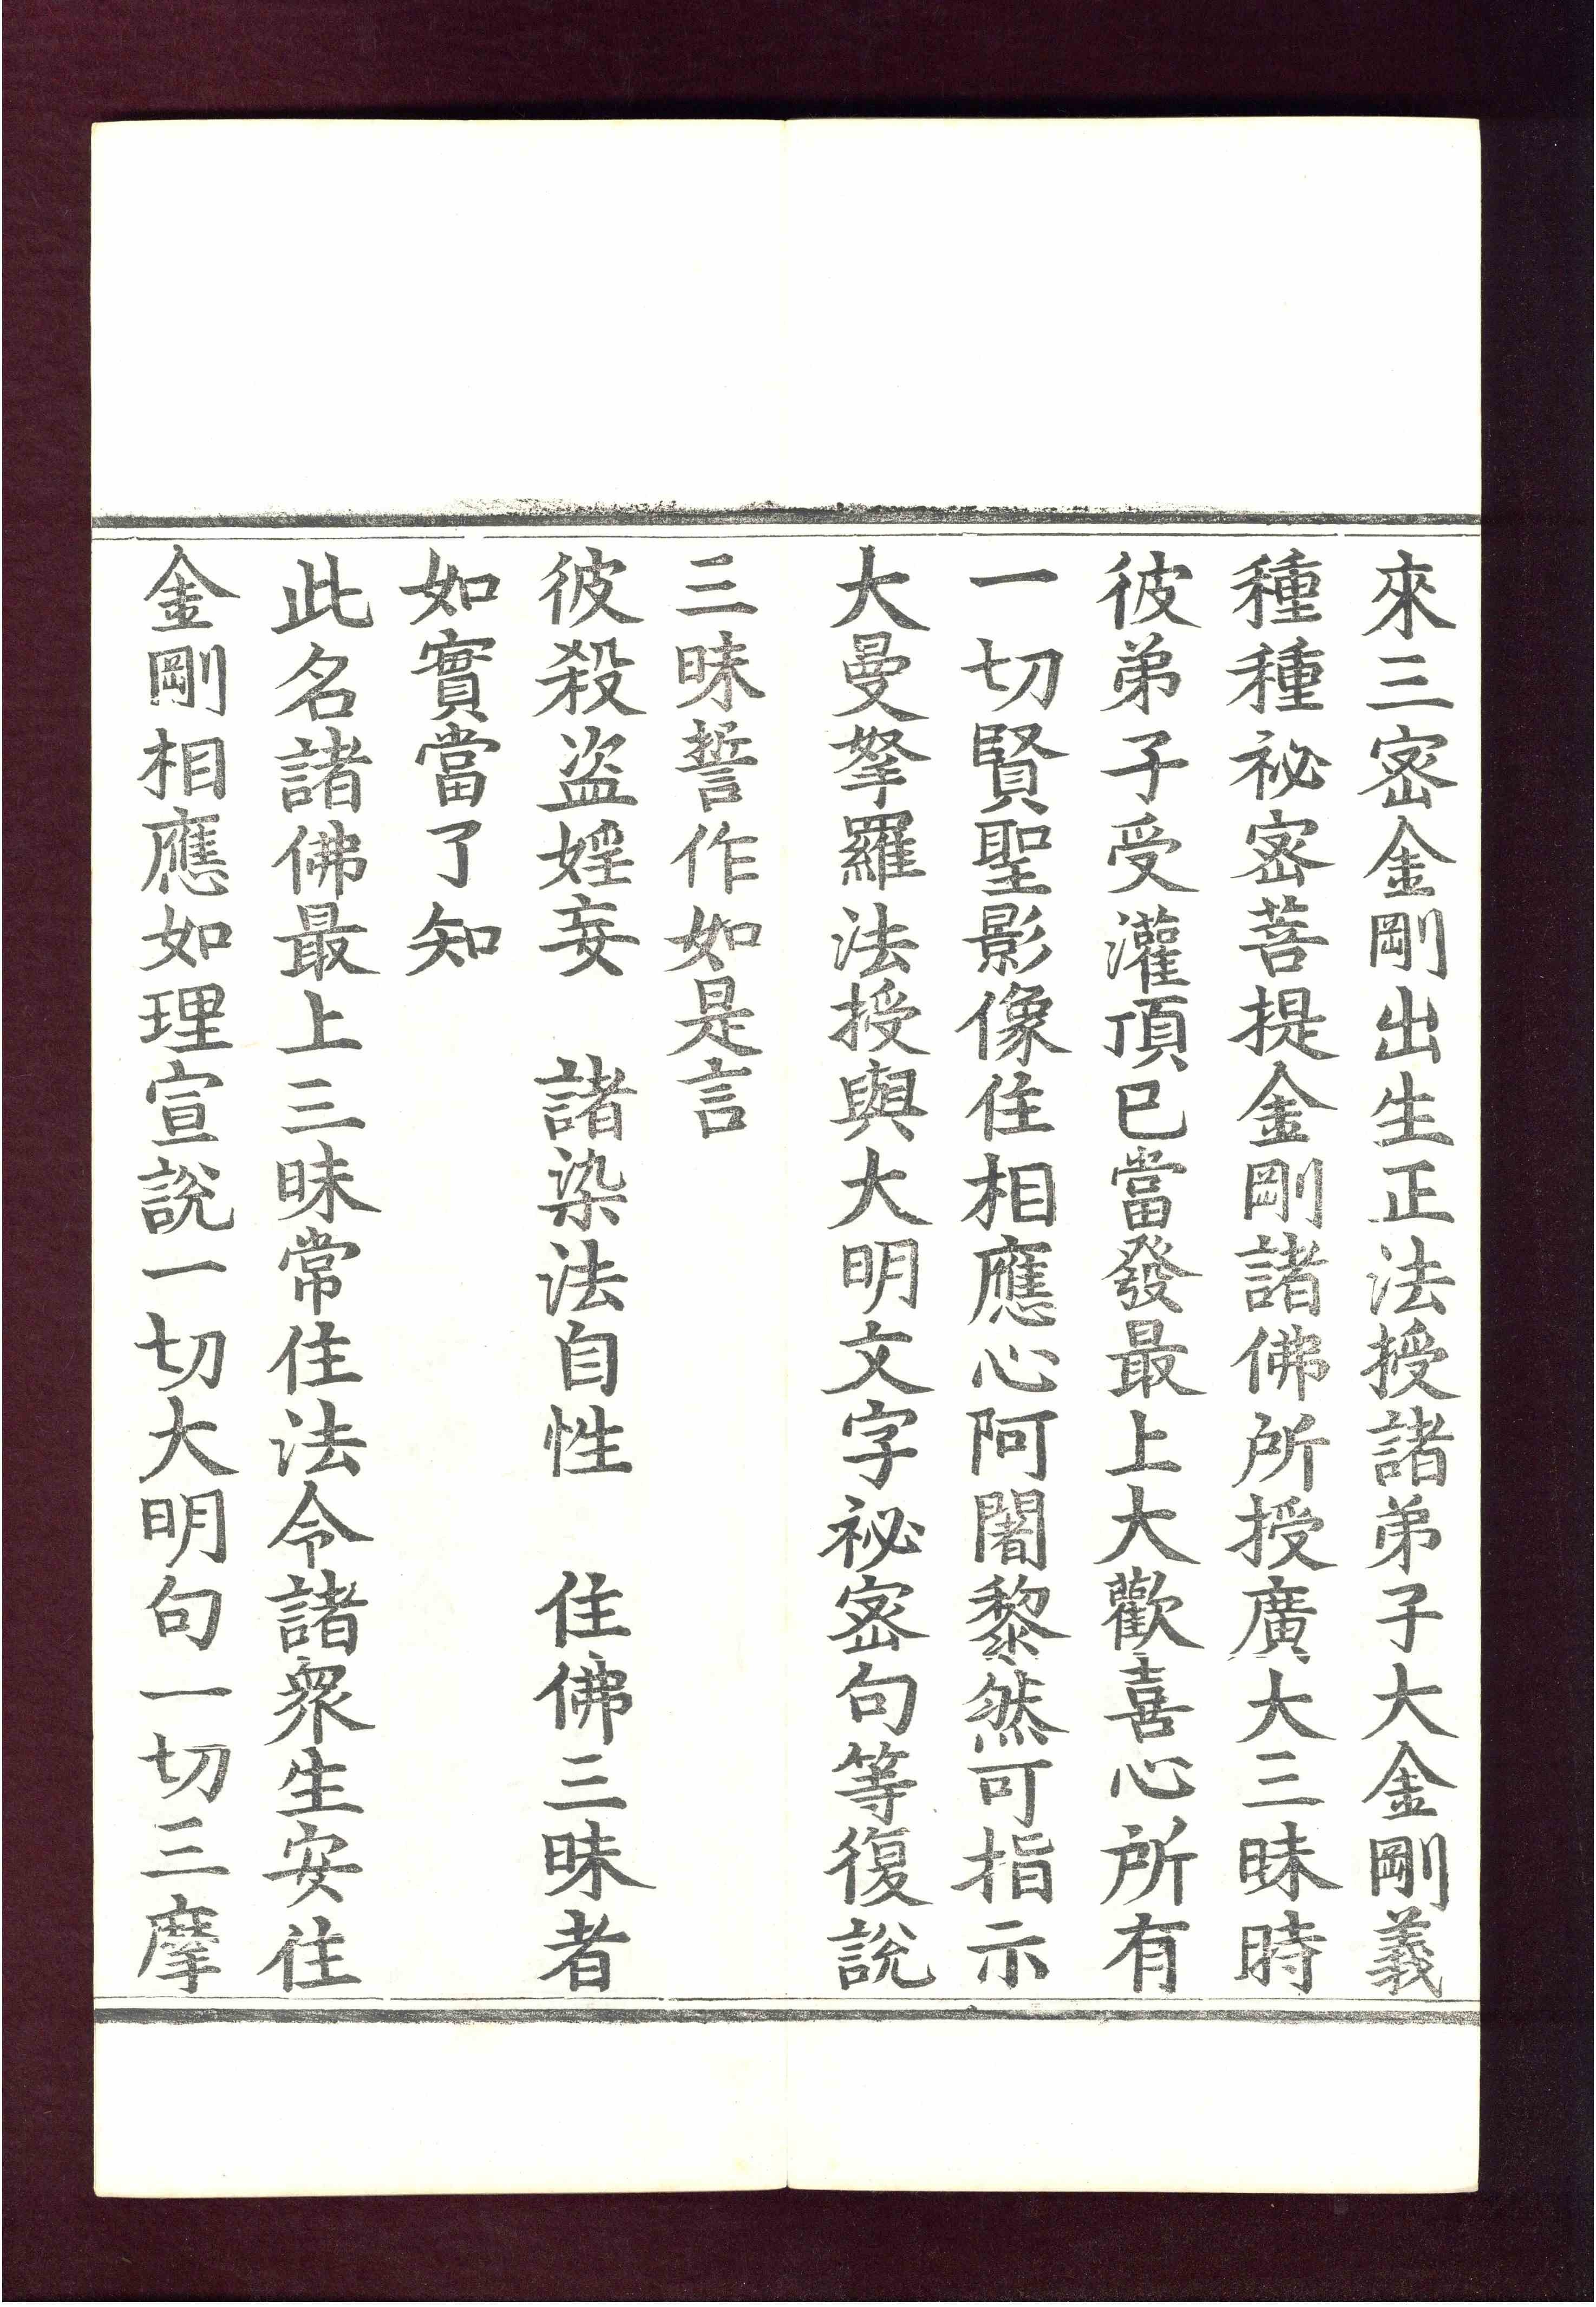 來三密金剛出生正法授諸弟子大金剛義
種種祕密菩提金剛諸佛所授廣大三昧時
彼弟子受灌頂已當發最上大歡喜心所有
一切賢聖影像住相應心阿闍黎然可指示
大曼拏羅法授與大明文字祕密句等復說
三昧誓作如是言
彼殺盜婬妄　諸染法自性　住佛三昧者
如實當了知
此名諸佛最上三昧常住法令諸衆生安住
金剛相應如理宣說一切大明句一切三摩